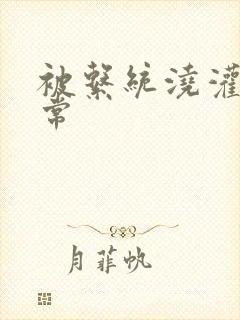 被繫統澆灌
常
月菲帆